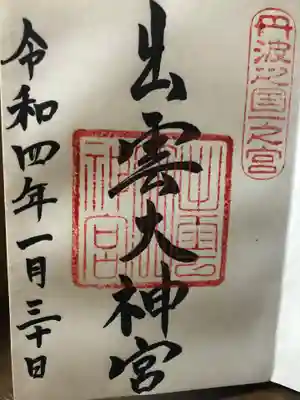 丹波之国一之宮
出雲大神宮
令和四年一月三十日